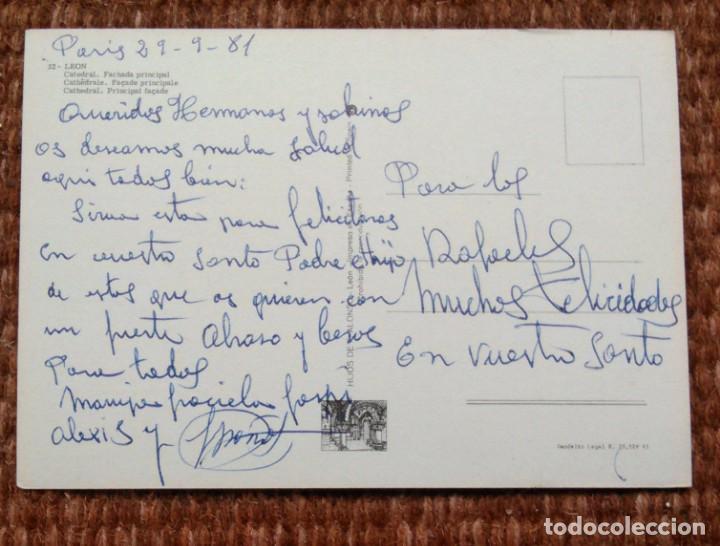 Paris 29-9-81
32 - LEON
Catedral. Fachada principal
Cathédrale. Façade principale
Cathedral. Principal façade
Queridos Hermanos y sobrinos
os deseamos mucha salud
aqui todos bien:
Sirva esta para felicitaros
En vuestro Santo Padre e Hijo
de estos que os quieren con
un fuerte Abraso y besos
Para todos
Maruja Graciela
alexis y
Para los
Rafaeles
Muchas Felicidades
En vuestro Santo
HIJOS DE
León
Depósito Legal B.
todocoleccion